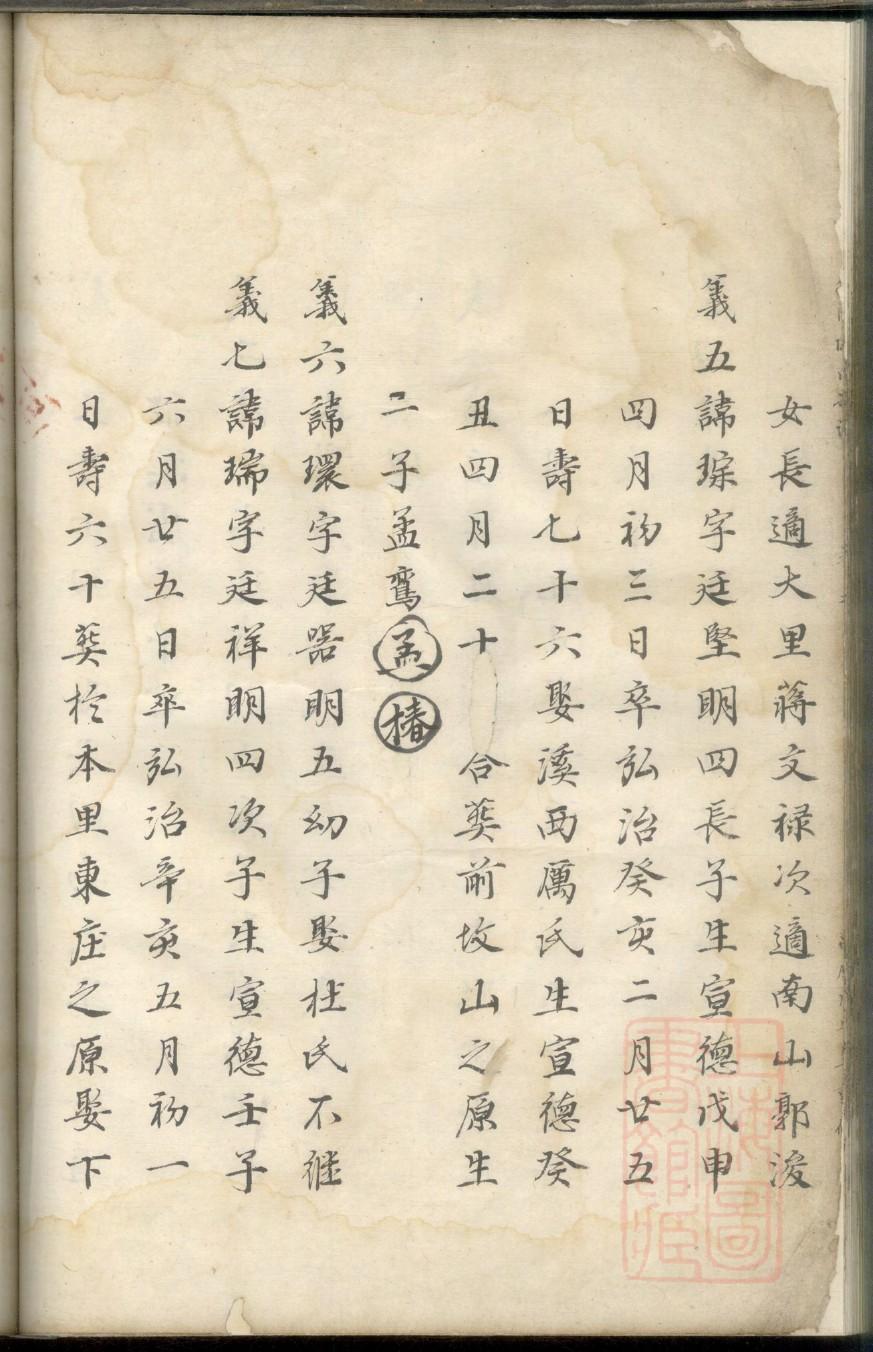 女長適大里蔣文祿次適南山郭浚
義五諱琮字廷堅明四長子生宣德戊申
四月初三日卒弘治癸亥二月廿五
日壽七十六娶溪西厲氏生宣德癸
丑四月二十 合葬前坟山之原生
二子孟鸞孟椿
義六諱環字廷器明五幼子娶杜氏不継
義七諱瑞字廷祥明四次子生宣德壬子
六月廿五日卒弘治辛亥五月初一
日壽六十葬於本里東庄之原娶下